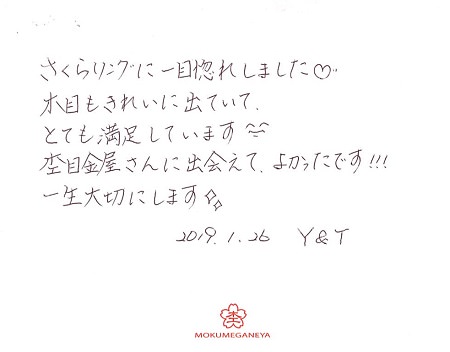 さくらリングに一目惚れしました♡
木目もきれいに出ていて、
とても満足しています
杢目金屋さんに出会えて、よかったです!!!
一生大切にします
2019.1.26 Y&T
杢
MOKUMEGANEYA